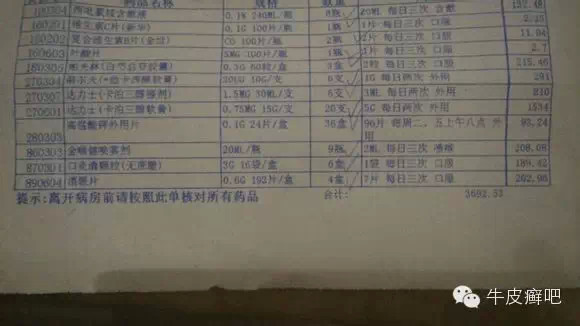 药品名称 规格 数量
0.1% 240ML/瓶 20ML 每日三次 含漱 132.48
160201 维生素C片(新华) 0.1G 100片/瓶 1瓶 1片 每日三次 口服
160202 复合维生素B片 CO 100片/瓶 2片 每日三次 口服 11.94
160603 叶酸片 5MG 100片/瓶 1瓶 每日三次 口服 2.7
180305 0.3G 60粒/盒 每日三次 口服 215.46
270304 10G/支 1G 每日两次 外用 291
270307 达力士(卡泊三醇搽剂) 1.5MG 30ML/瓶 3ML 每日两次 外用 810
270601 达力士(卡泊三醇软膏) 0.75MG 15G/支 26支 5G 每日两次 外用 1534
280303 高锰酸钾外用片 0.1G 24片/盒 36盒 96片 每周二、五上午八点 外用 93.24
860303 金喉健喷雾剂 20ML/瓶 2ML 每日三次 喷喉 208.08
870301 口炎清颗粒(无蔗糖) 3G 16袋/盒 6盒 1袋 每日三次 口服 189.42
890604 消银片 0.6G 192片/盒 4盒 7片 每日三次 口服 202.96
提示:离开病房前请按照此单核对所有药品 合计: 3692.52
牛皮癣吧